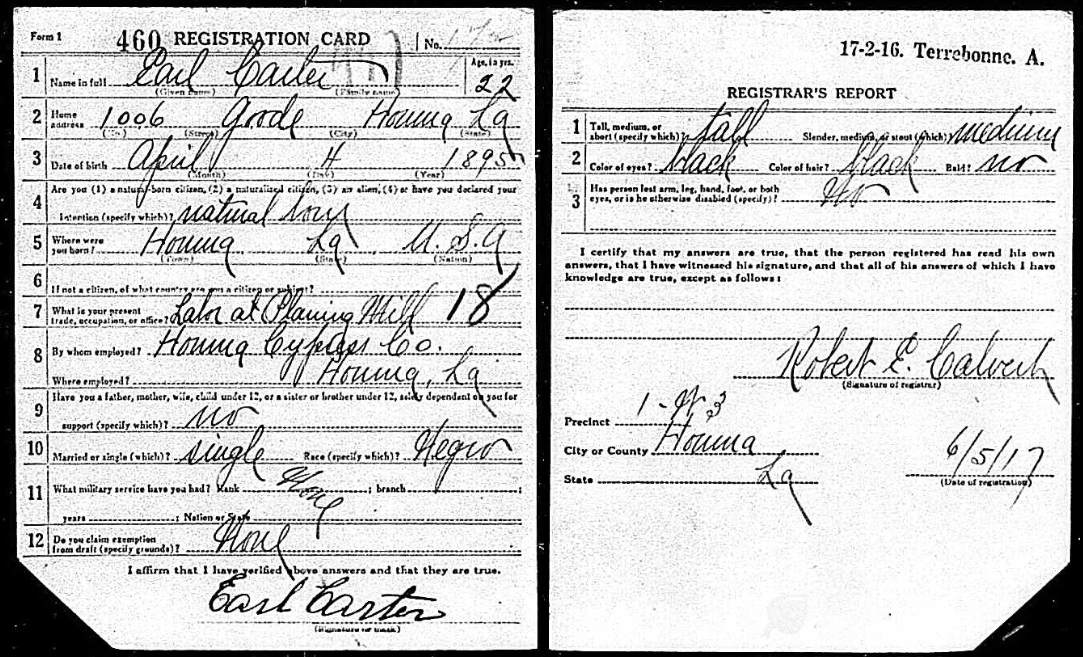 Form 1 460 REGISTRATION CARD No.
1 Name in full Earl Carter Age, in yrs. 22
(Given name) (Family name)
2 Home address 1006 Goode Houma La
(No.) (Street) (City) (State)
3 Date of birth April 4 1895
(Month) (Day) (Year)
4 Are you (1) a natural-born citizen, (2) a naturalized citizen, (3) an alien, (4) or have you declared your
intention (specify which)? natural born
5 Where were you born? Houma La U.S.A
(Town) (State) (Nation)
6 If not a citizen, of what country are you a citizen or subject?
7 What is your present trade, occupation, or office? Labor at Planing Mill 18
8 By whom employed? Houma Cypress Co.
Where employed? Houma, La
9 Have you a father, mother, wife, child under 12, or a sister or brother under 12, solely dependent on you for
support (specify which)? no
10 Married or single (which)? single Race (specify which)? Negro
11 What military service have you had? Rank None ; branch ;
years ; Nation or State
12 Do you claim exemption from draft (specify grounds)? None
I affirm that I have verified above answers and that they are true.
Earl Carter
(Signature or mark)
17-2-16. Terrebonne. A.
REGISTRAR'S REPORT
1 Tall, medium, or short (specify which)? tall Slender, medium, or stout (which)? medium
2 Color of eyes? black Color of hair? black Bald? no
3 Has person lost arm, leg, hand, foot, or both
eyes, or is he otherwise disabled (specify)? No
I certify that my answers are true, that the person registered has read his own
answers, that I have witnessed his signature, and that all of his answers of which I have
knowledge are true, except as follows:
Robert E. Calvert
(Signature of registrar)
Precinct 1 - W 3
City or County Houma
State La
6/5/17
(Date of registration)